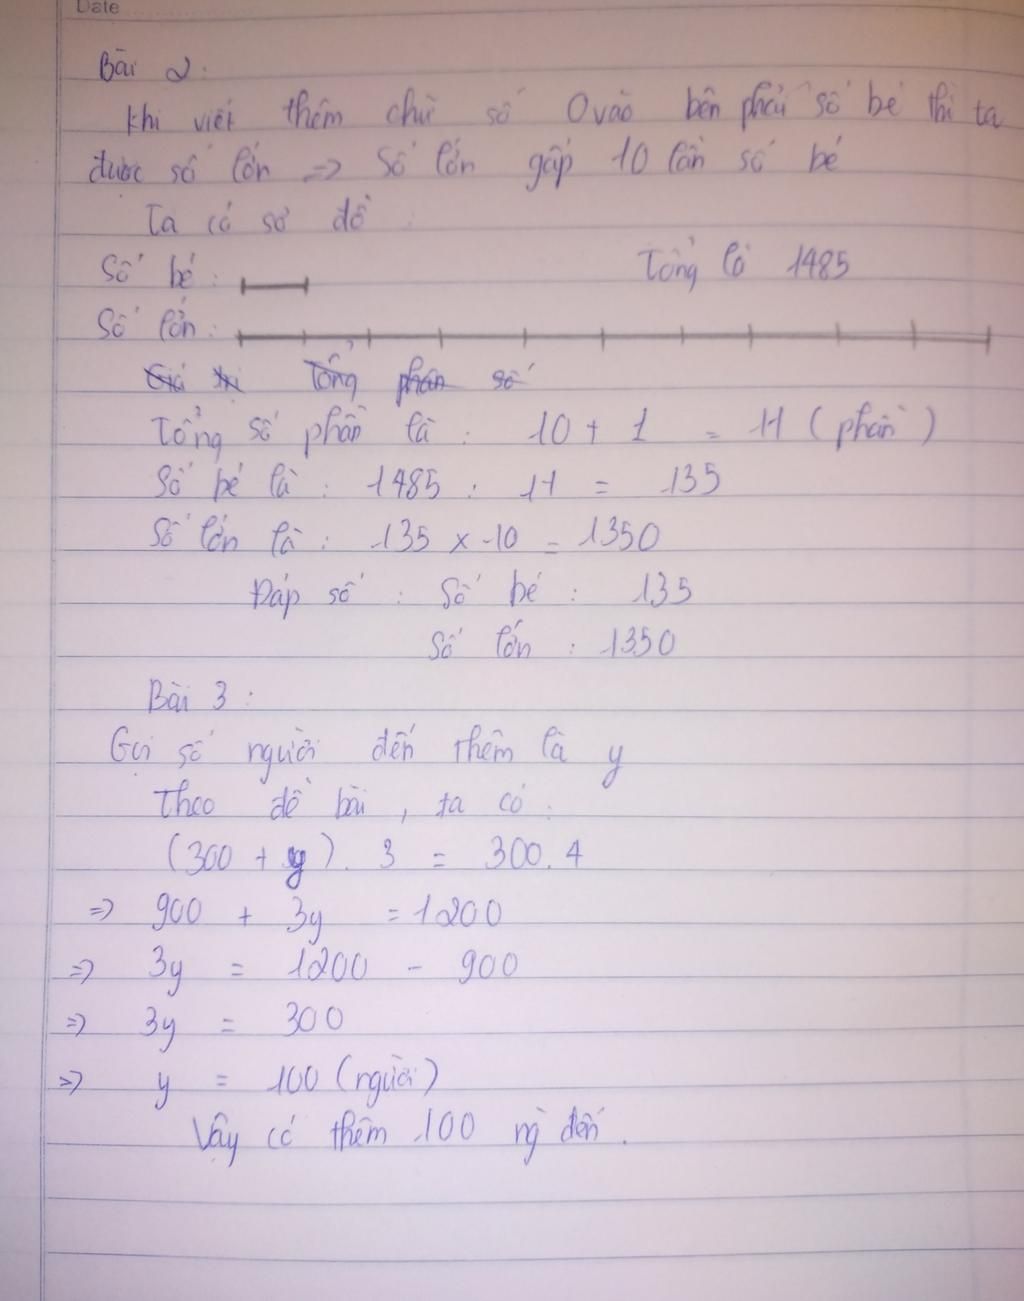 Date
Bài 2:
Khi viết thêm chữ số 0 vào bên phải số bé thì ta
được số lớn => Số lớn gấp 10 lần số bé
Ta có sơ đồ:
Số bé: Tổng là 1485
Số lớn:
Giá trị Tổng phần số
Tổng số phần là: 10 + 1 = 11 (phần)
Số bé là: 1485 : 11 = 135
Số lớn là: 135 x 10 = 1350
Đáp số: Số bé: 135
Số lớn: 1350
Bài 3:
Gọi số người đến thêm là y
Theo đề bài, ta có:
(300 + y). 3 = 300.4
=> 900 + 3y = 1200
=> 3y = 1200 - 900
=> 3y = 300
=> y = 100 (người)
Vậy có thêm 100 ng đến.